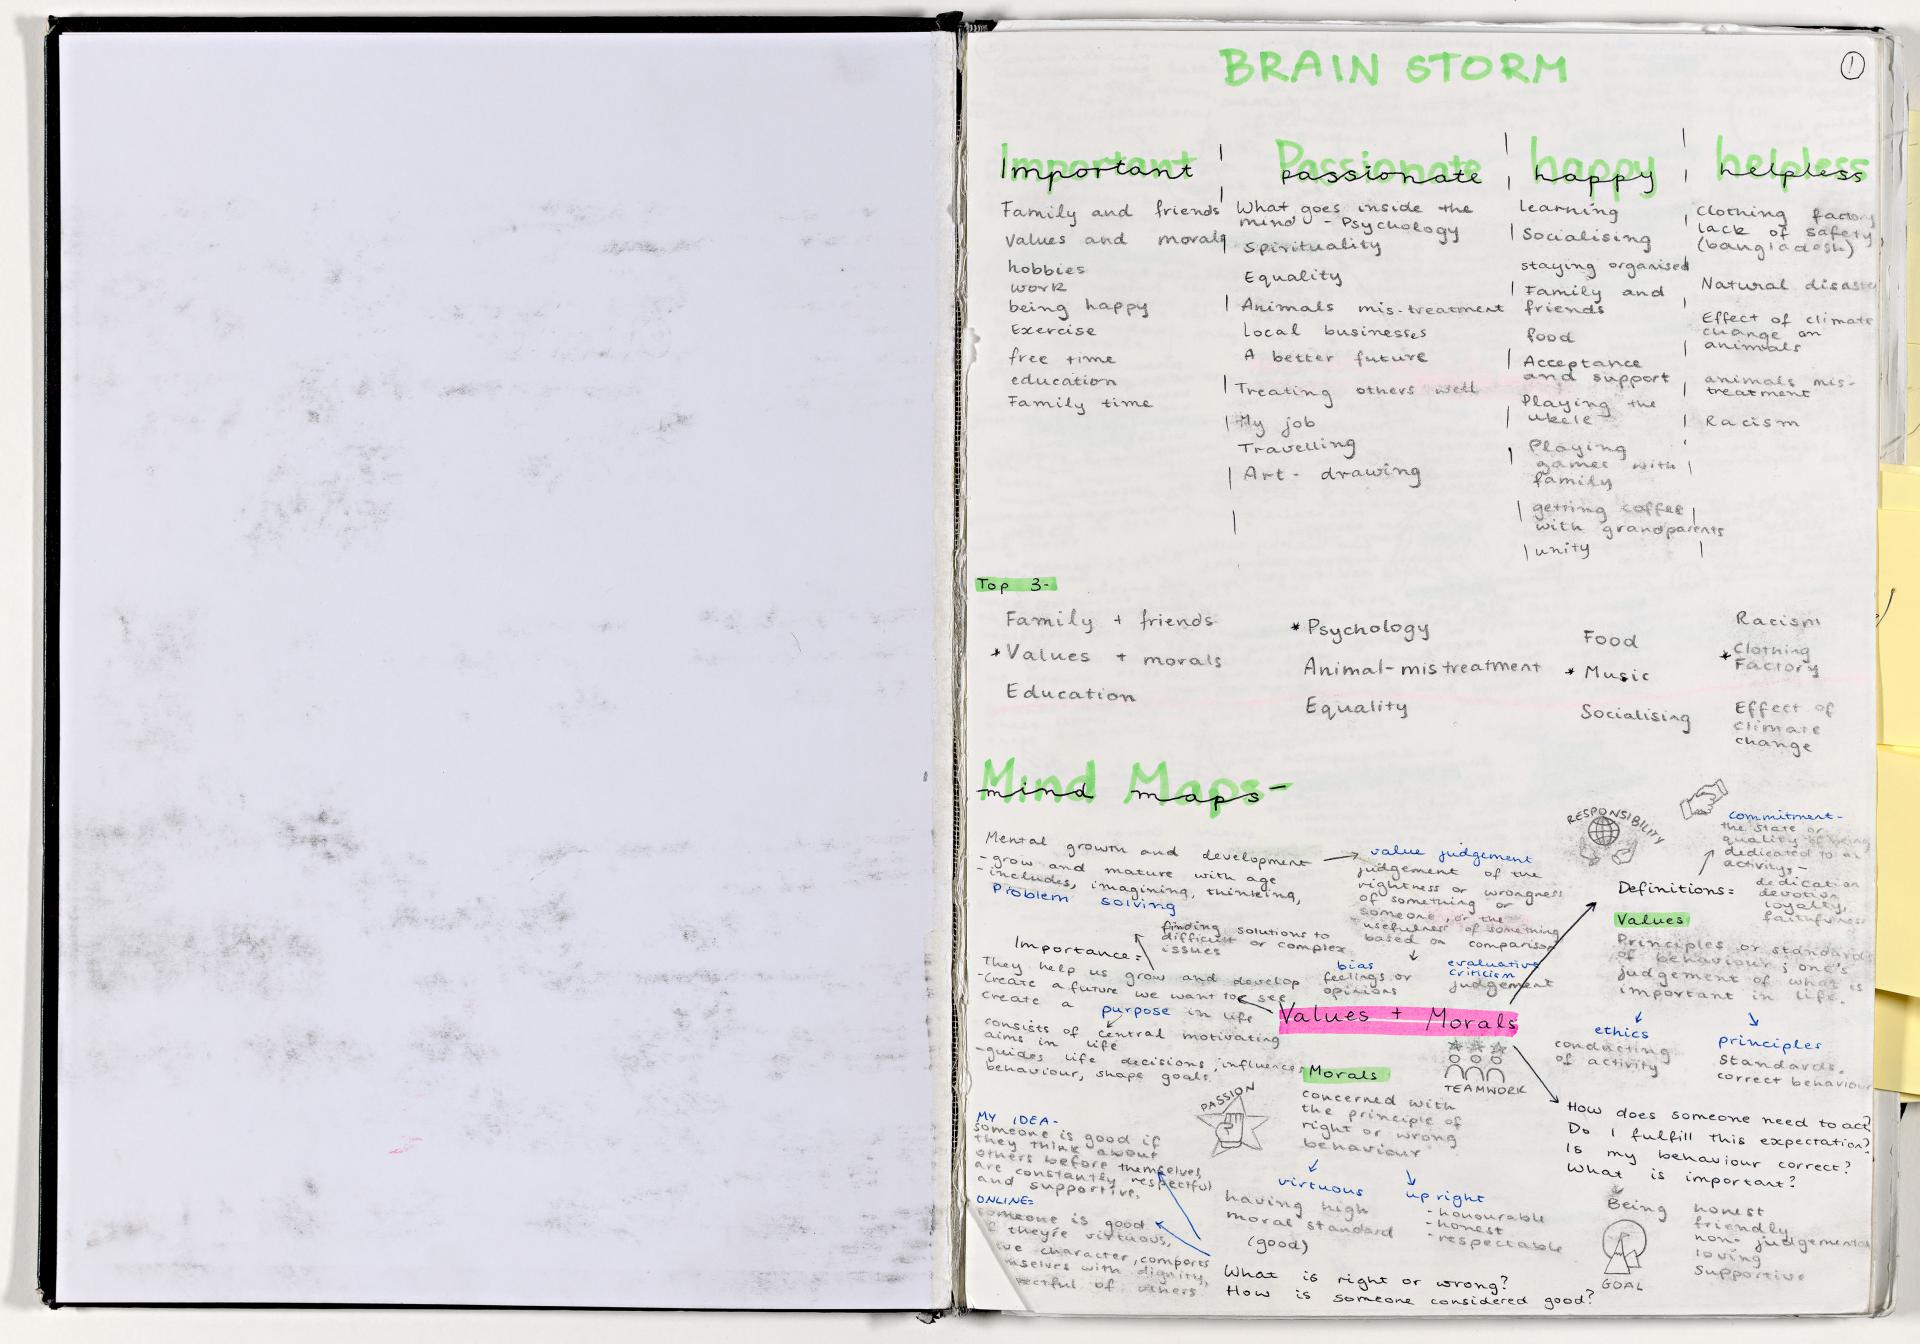 BRAIN STORM
1
Important
Family and friends
Values and morals
hobbies
work
being happy
Exercise
free time
education
Family time
Passionate
What goes inside the
mind - Psychology
Spirituality
Equality
Animals mis-treatment
Local businesses
A better future
Treating others well
My job
Travelling
Art - drawing
happy
Learning
Socialising
staying organised
Family and
friends
food
Acceptance
and support
Playing the
ukele
Playing
games with
family
getting coffee
with grandparents
unity
helpless
Clothing factory
lack of safety
(bangladesh)
Natural disaste
Effect of climate
change on
animals
animals mis-
treatment
Racism
Top 3-
Family + friends
* Values + morals
Education
* Psychology
Animal-mistreatment
Equality
Food
* Music
Socialising
Racism
* Clothing
Factory
Effect of
climate
change
Mind Maps-
mind maps-
Mental growth and development
- grow and mature with age
- includes, imagining, thinking,
Problem solving
finding solutions to
difficult or complex
issues
value judgement
judgement of the
rightness or wrongness
of something or
someone, or the
usefulness of something
based on comparison
bias
feelings or
opinions
evaluative
criticism
judgement
RESPONSIBILITY
commitment-
the state or
quality of being
dedicated to an
activity,-
dedication
devotion
loyalty,
faithfulness
Definitions:
Values
Principles or standards
of behaviour; one's
judgement of what is
important in life.
ethics
conducting
of activity
principles
Standards.
correct behaviour
Importance:
They help us grow and develop
-Create a future we want to see
create a purpose in life
consists of central motivating
aims in life
-guides life decisions, influences
behaviour, shape goals.
Values + Morals
TEAMWORK
PASSION
Morals
concerned with
the principle of
right or wrong
behaviour
virtuous
having high
moral standard
(good)
upright
- honourable
- honest
- respectable
MY IDEA-
someone is good if
they think about
others before themselves,
are constantly respectful
and supportive.
ONLINE:
someone is good
if they're virtuous,
character, comports
mselves with dignity,
ectful of others
What is right or wrong?
How is someone considered good?
How does someone need to act?
Do I fulfill this expectation?
Is my behaviour correct?
What is important?
Being honest
friendly
non-judgemental
loving
supportive
GOAL